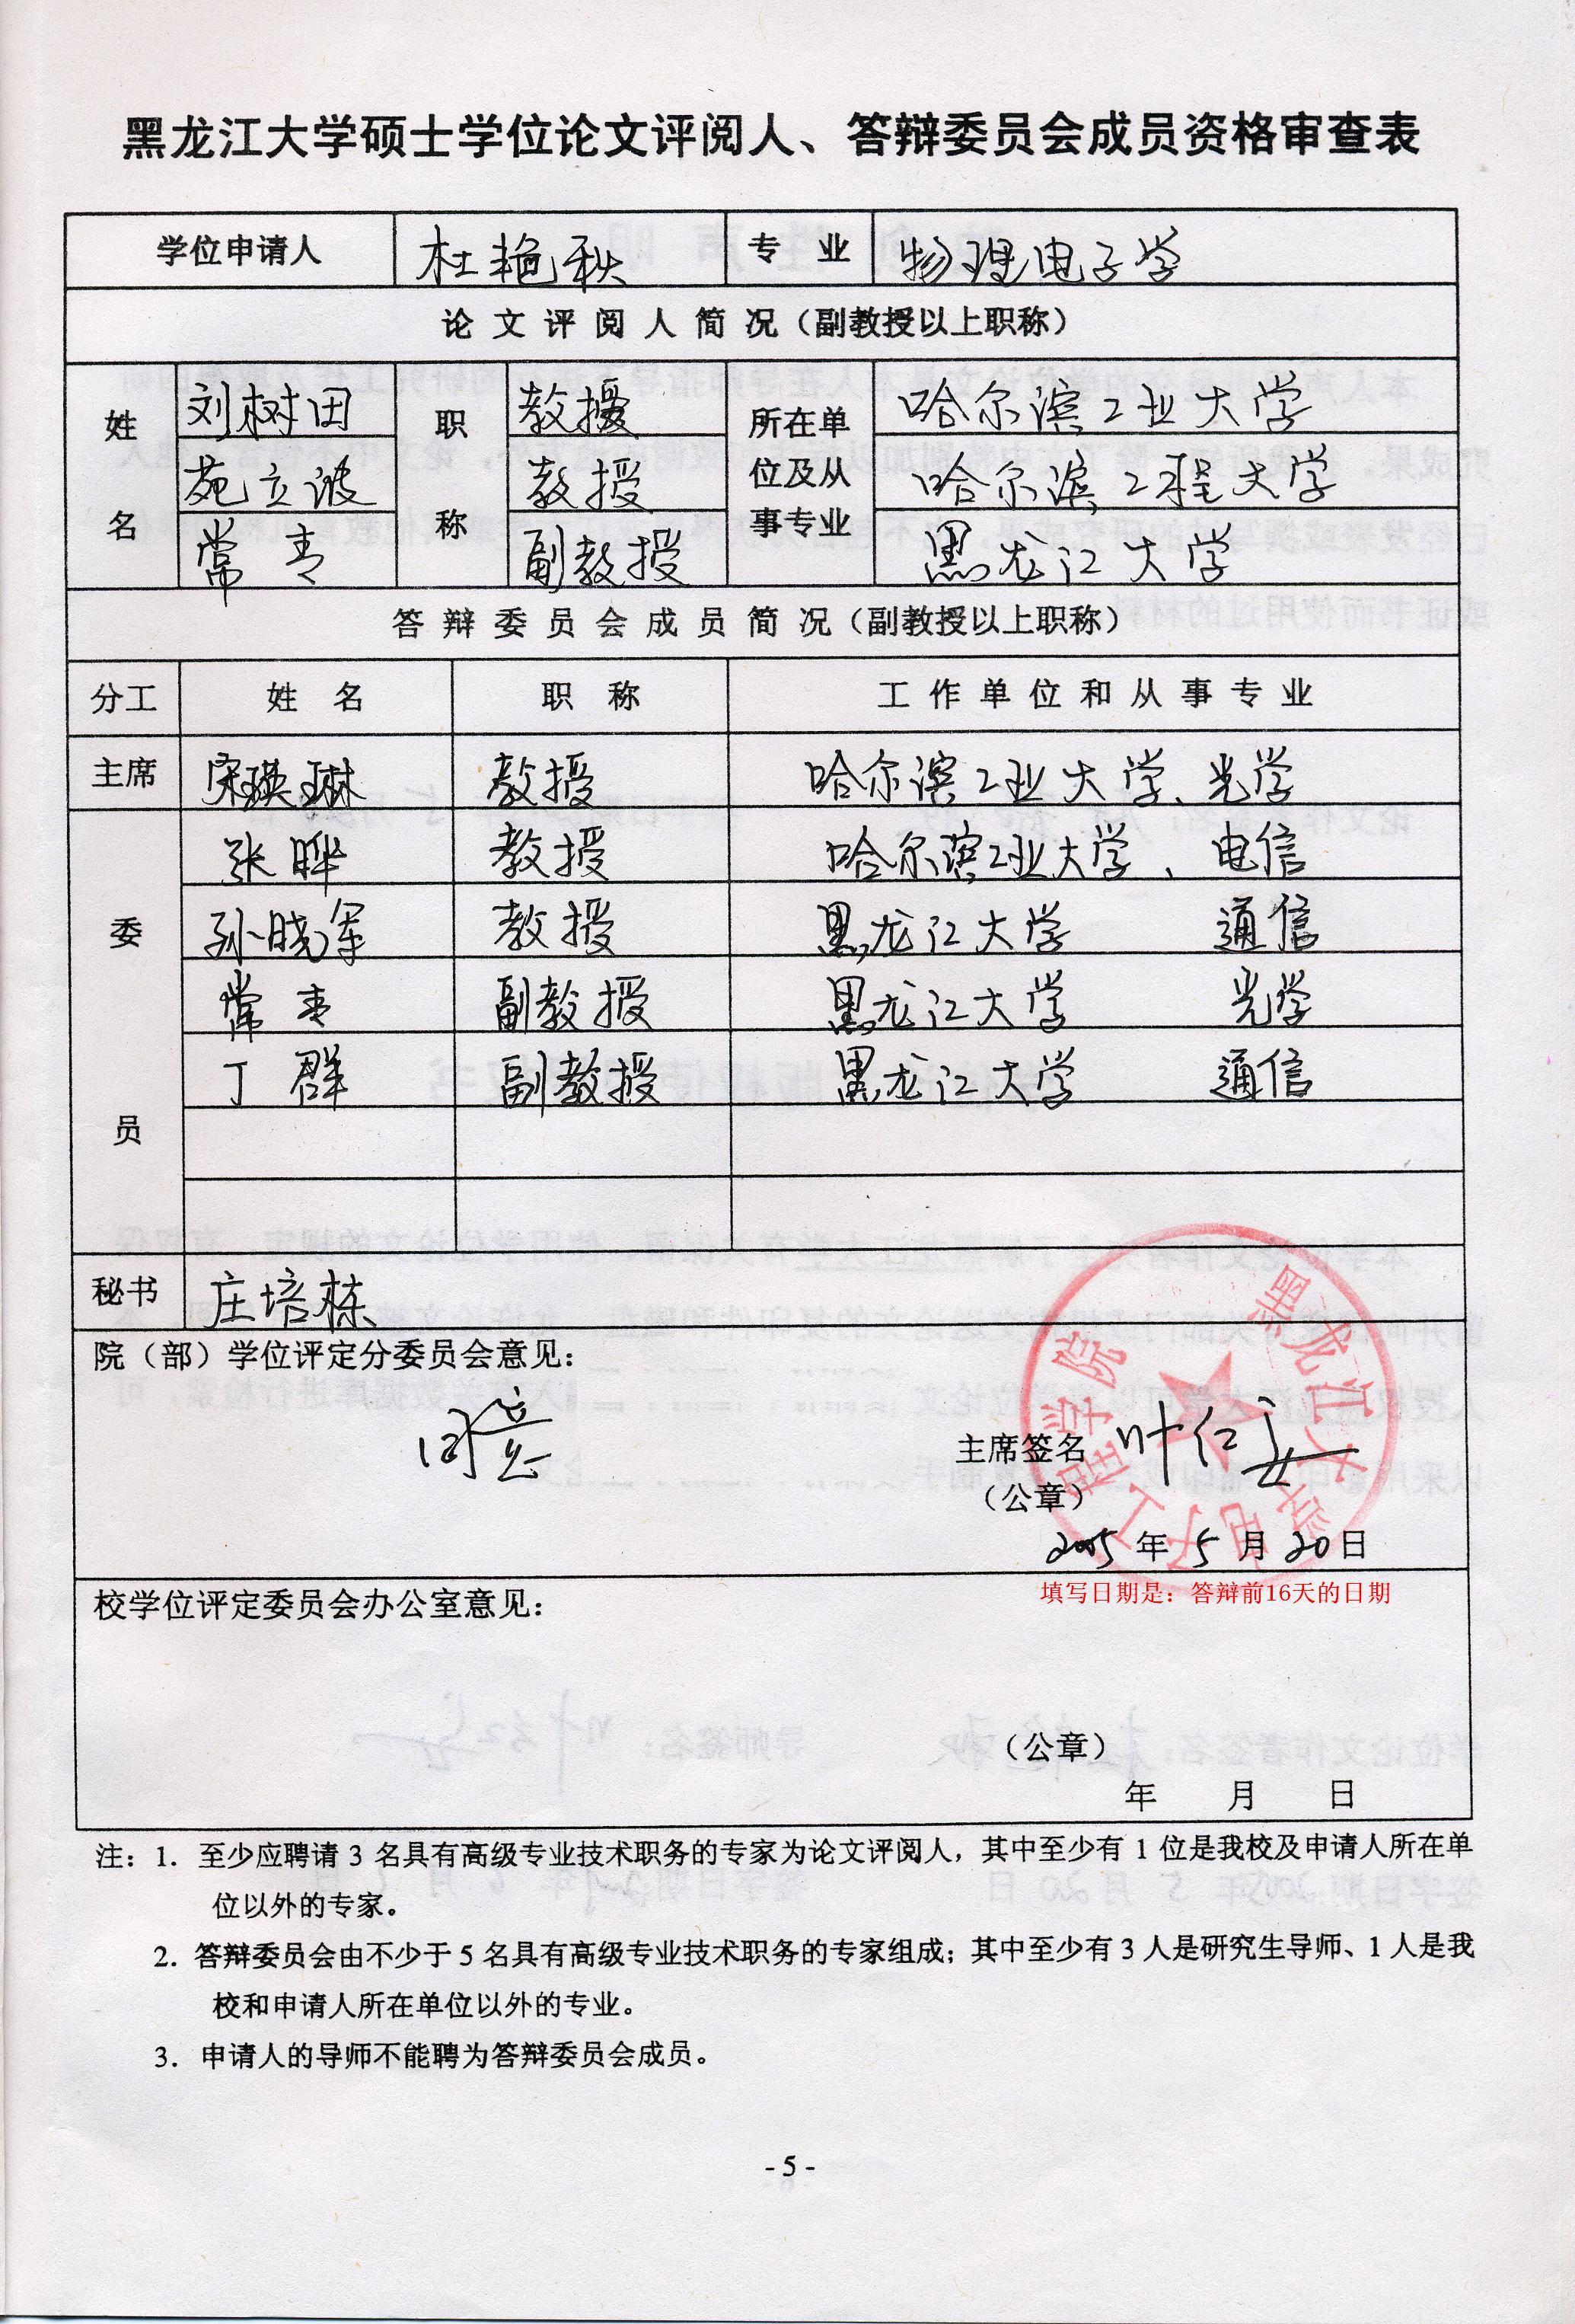 黑龙江大学硕士学位论文评阅人、答辩委员会成员资格审查表
学位申请人 杜艳秋 专 业 物理电子学
论 文 评 阅 人 简 况（副教授以上职称）
姓名 职称 所在单位及从事专业
刘树田 教授 哈尔滨工业大学
苑立波 教授 哈尔滨工程大学
常青 副教授 黑龙江大学
答 辩 委 员 会 成 员 简 况（副教授以上职称）
分工 姓 名 职 称 工 作 单 位 和 从 事 专 业
主席 宋瑛琳 教授 哈尔滨工业大学、光学
委员
张晔 教授 哈尔滨工业大学、电信
孙晓军 教授 黑龙江大学 通信
常青 副教授 黑龙江大学 光学
丁群 副教授 黑龙江大学 通信
秘书 庄培栋
院（部）学位评定分委员会意见：
同意
主席签名
（公章）
黑龙江大学电子工程学院
2005 年 5 月 20 日
填写日期是：答辩前16天的日期
校学位评定委员会办公室意见：
（公章）
年 月 日
注：1. 至少应聘请 3 名具有高级专业技术职务的专家为论文评阅人，其中至少有 1 位是我校及申请人所在单
位以外的专家。
2. 答辩委员会由不少于 5 名具有高级专业技术职务的专家组成；其中至少有 3 人是研究生导师、1 人是我
校和申请人所在单位以外的专业。
3. 申请人的导师不能聘为答辩委员会成员。
- 5 -